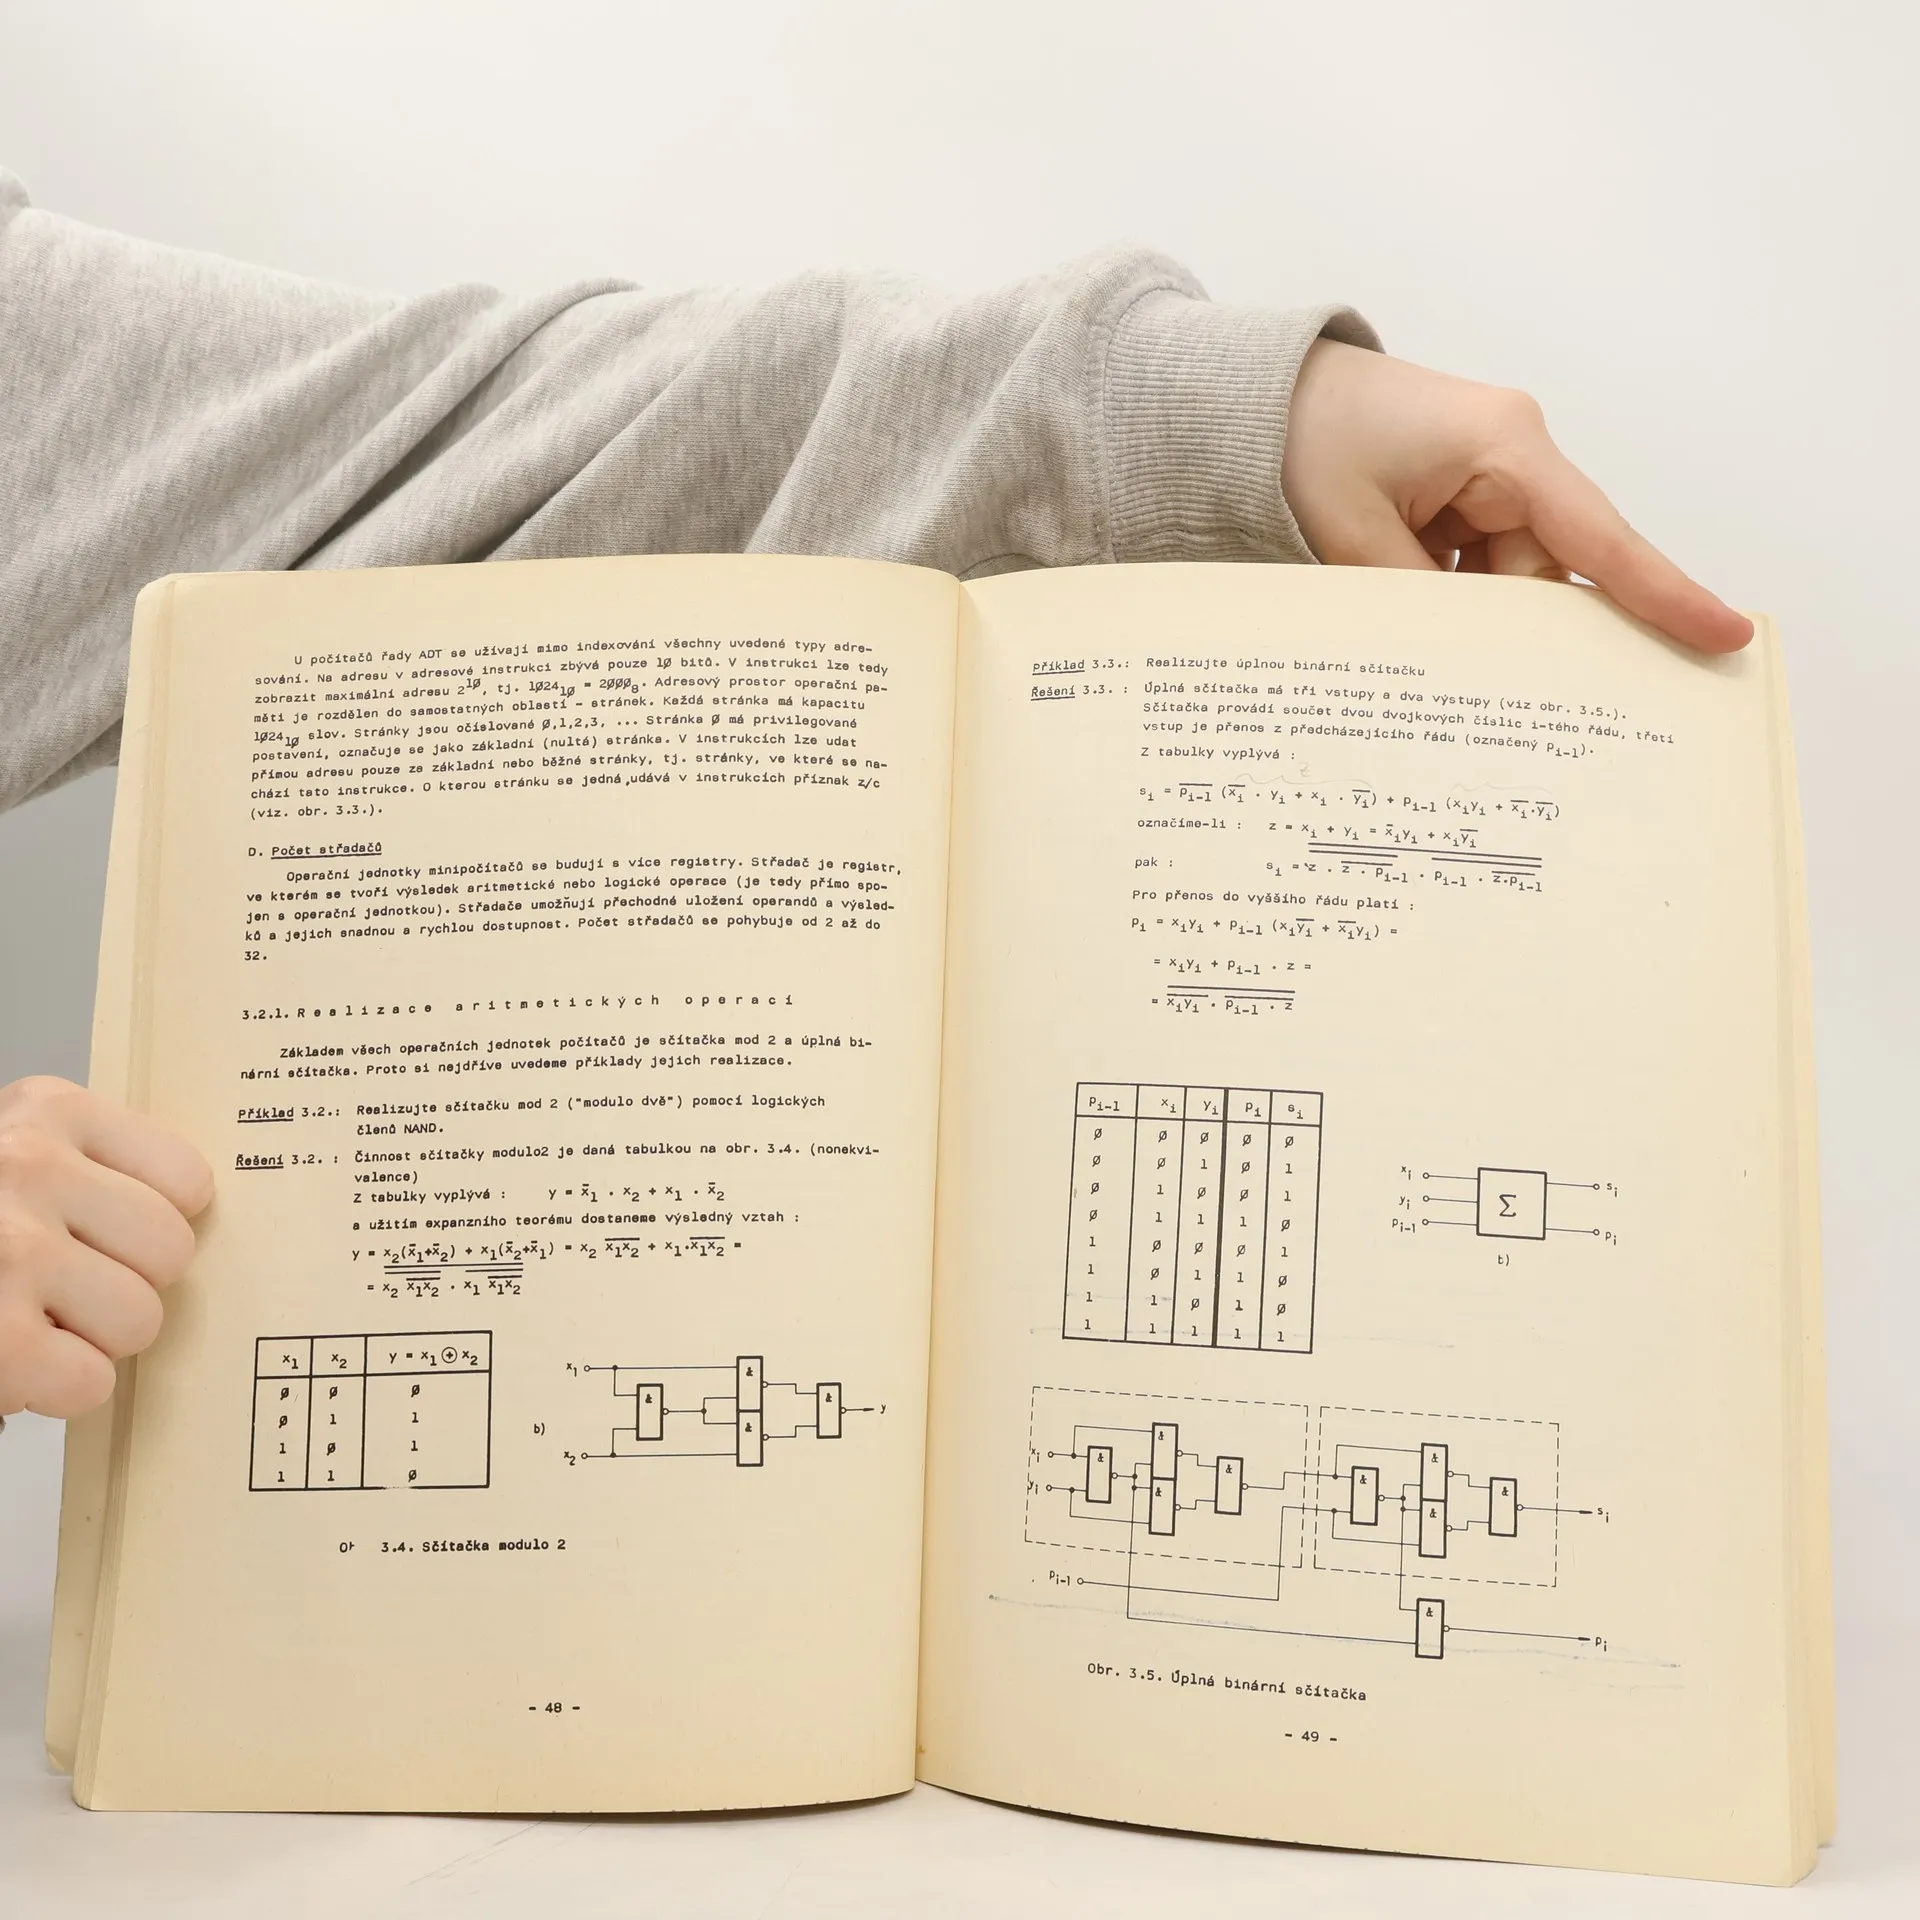 U počítačů řady ADT se užívají mimo indexování všechny uvedené typy adre-
sování. Na adresu v adresové instrukci zbývá pouze 1Ø bitů. V instrukci lze tedy
zobrazit maximální adresu 2^1Ø, tj. 1Ø24_1Ø = 2ØØØ_8. Adresový prostor operační pa-
měti je rozdělen do samostatných oblastí - stránek. Každá stránka má kapacitu
1Ø24_1Ø slov. Stránky jsou očíslované Ø,1,2,3, ... Stránka Ø má privilegované
postavení, označuje se jako základní (nultá) stránka. V instrukcích lze udat
přímou adresu pouze ze základní nebo běžné stránky, tj. stránky, ve které se na-
chází tato instrukce. O kterou stránku se jedná,udává v instrukcích příznak z/c
(viz. obr. 3.3.).
D. Počet střadačů
Operační jednotky minipočítačů se budují s více registry. Střadač je registr,
ve kterém se tvoří výsledek aritmetické nebo logické operace (je tedy přímo spo-
jen s operační jednotkou). Střadače umožňují přechodné uložení operandů a výsled-
ků a jejich snadnou a rychlou dostupnost. Počet střadačů se pohybuje od 2 až do
32.
3.2.1. Realizace aritmetických operací
Základem všech operačních jednotek počítačů je sčítačka mod 2 a úplná bi-
nární sčítačka. Proto si nejdříve uvedeme příklady jejich realizace.
Příklad 3.2.: Realizujte sčítačku mod 2 ("modulo dvě") pomocí logických
členů NAND.
Řešení 3.2. : Činnost sčítačky modulo2 je daná tabulkou na obr. 3.4. (nonekvi-
valence)
Z tabulky vyplývá : y = x̄₁ . x₂ + x₁ . x̄₂
a užitím expanzního teorému dostaneme výsledný vztah :
y = x₂(x̄₁+x̄₂) + x₁(x̄₂+x̄₁) = x₂ x̅₁x̅₂ + x₁.x̅₁x̅₂ =
= x₂ x₁x₂ . x₁ x₁x₂
x₁ x₂ y = x₁ ⊕ x₂
Ø Ø Ø
Ø 1 1
1 Ø 1
1 1 Ø
b)
x₁
x₂
& & & &
y
3.4. Sčítačka modulo 2
- 48 -
Příklad 3.3.: Realizujte úplnou binární sčítačku
Řešení 3.3. : Úplná sčítačka má tři vstupy a dva výstupy (viz obr. 3.5.).
Sčítačka provádí součet dvou dvojkových číslic i-tého řádu, třetí
vstup je přenos z předcházejícího řádu (označený p_i-1).
Z tabulky vyplývá :
z
s_i = p̅_i-1 (x̅_i . y_i + x_i . y̅_i) + p_i-1 (x_i y_i + x̅_i.y̅_i)
označíme-li : z = x_i + y_i = x̄_i y_i + x_i y̅_i
pak : s_i = z . z . p_i-1 . p_i-1 . z.p_i-1
Pro přenos do vyššího řádu platí :
p_i = x_i y_i + p_i-1 (x_i y̅_i + x̅_i y_i) =
= x_i y_i + p_i-1 . z =
= x_i y_i . p_i-1 . z
p_i-1 x_i y_i p_i s_i
Ø Ø Ø Ø Ø
Ø Ø 1 Ø 1
Ø 1 Ø Ø 1
Ø 1 1 1 Ø
1 Ø Ø Ø 1
1 Ø 1 1 Ø
1 1 Ø 1 Ø
1 1 1 1 1
x_i
y_i
p_i-1
Σ
s_i
p_i
b)
x_i
y_i
& & & & & & & &
s_i
p_i-1
&
p_i
Obr. 3.5. Úplná binární sčítačka
- 49 -